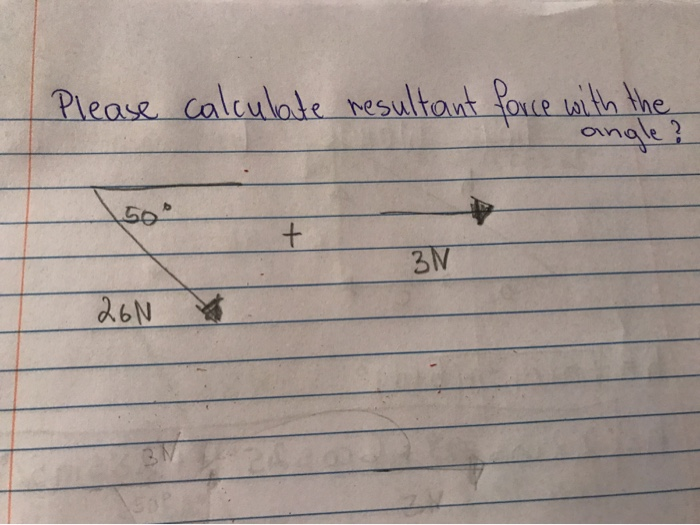 Please calculate resultant force with the
angle?
50°
+
3N
26N
3N
50°